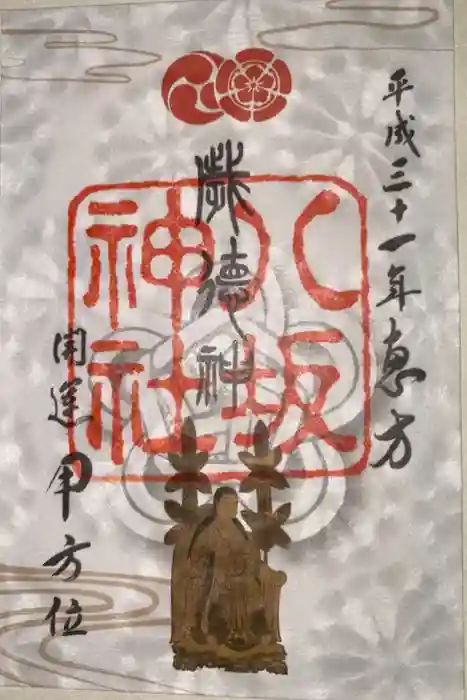 平成三十一年恵方
歳徳神
八坂神社
開運甲方位